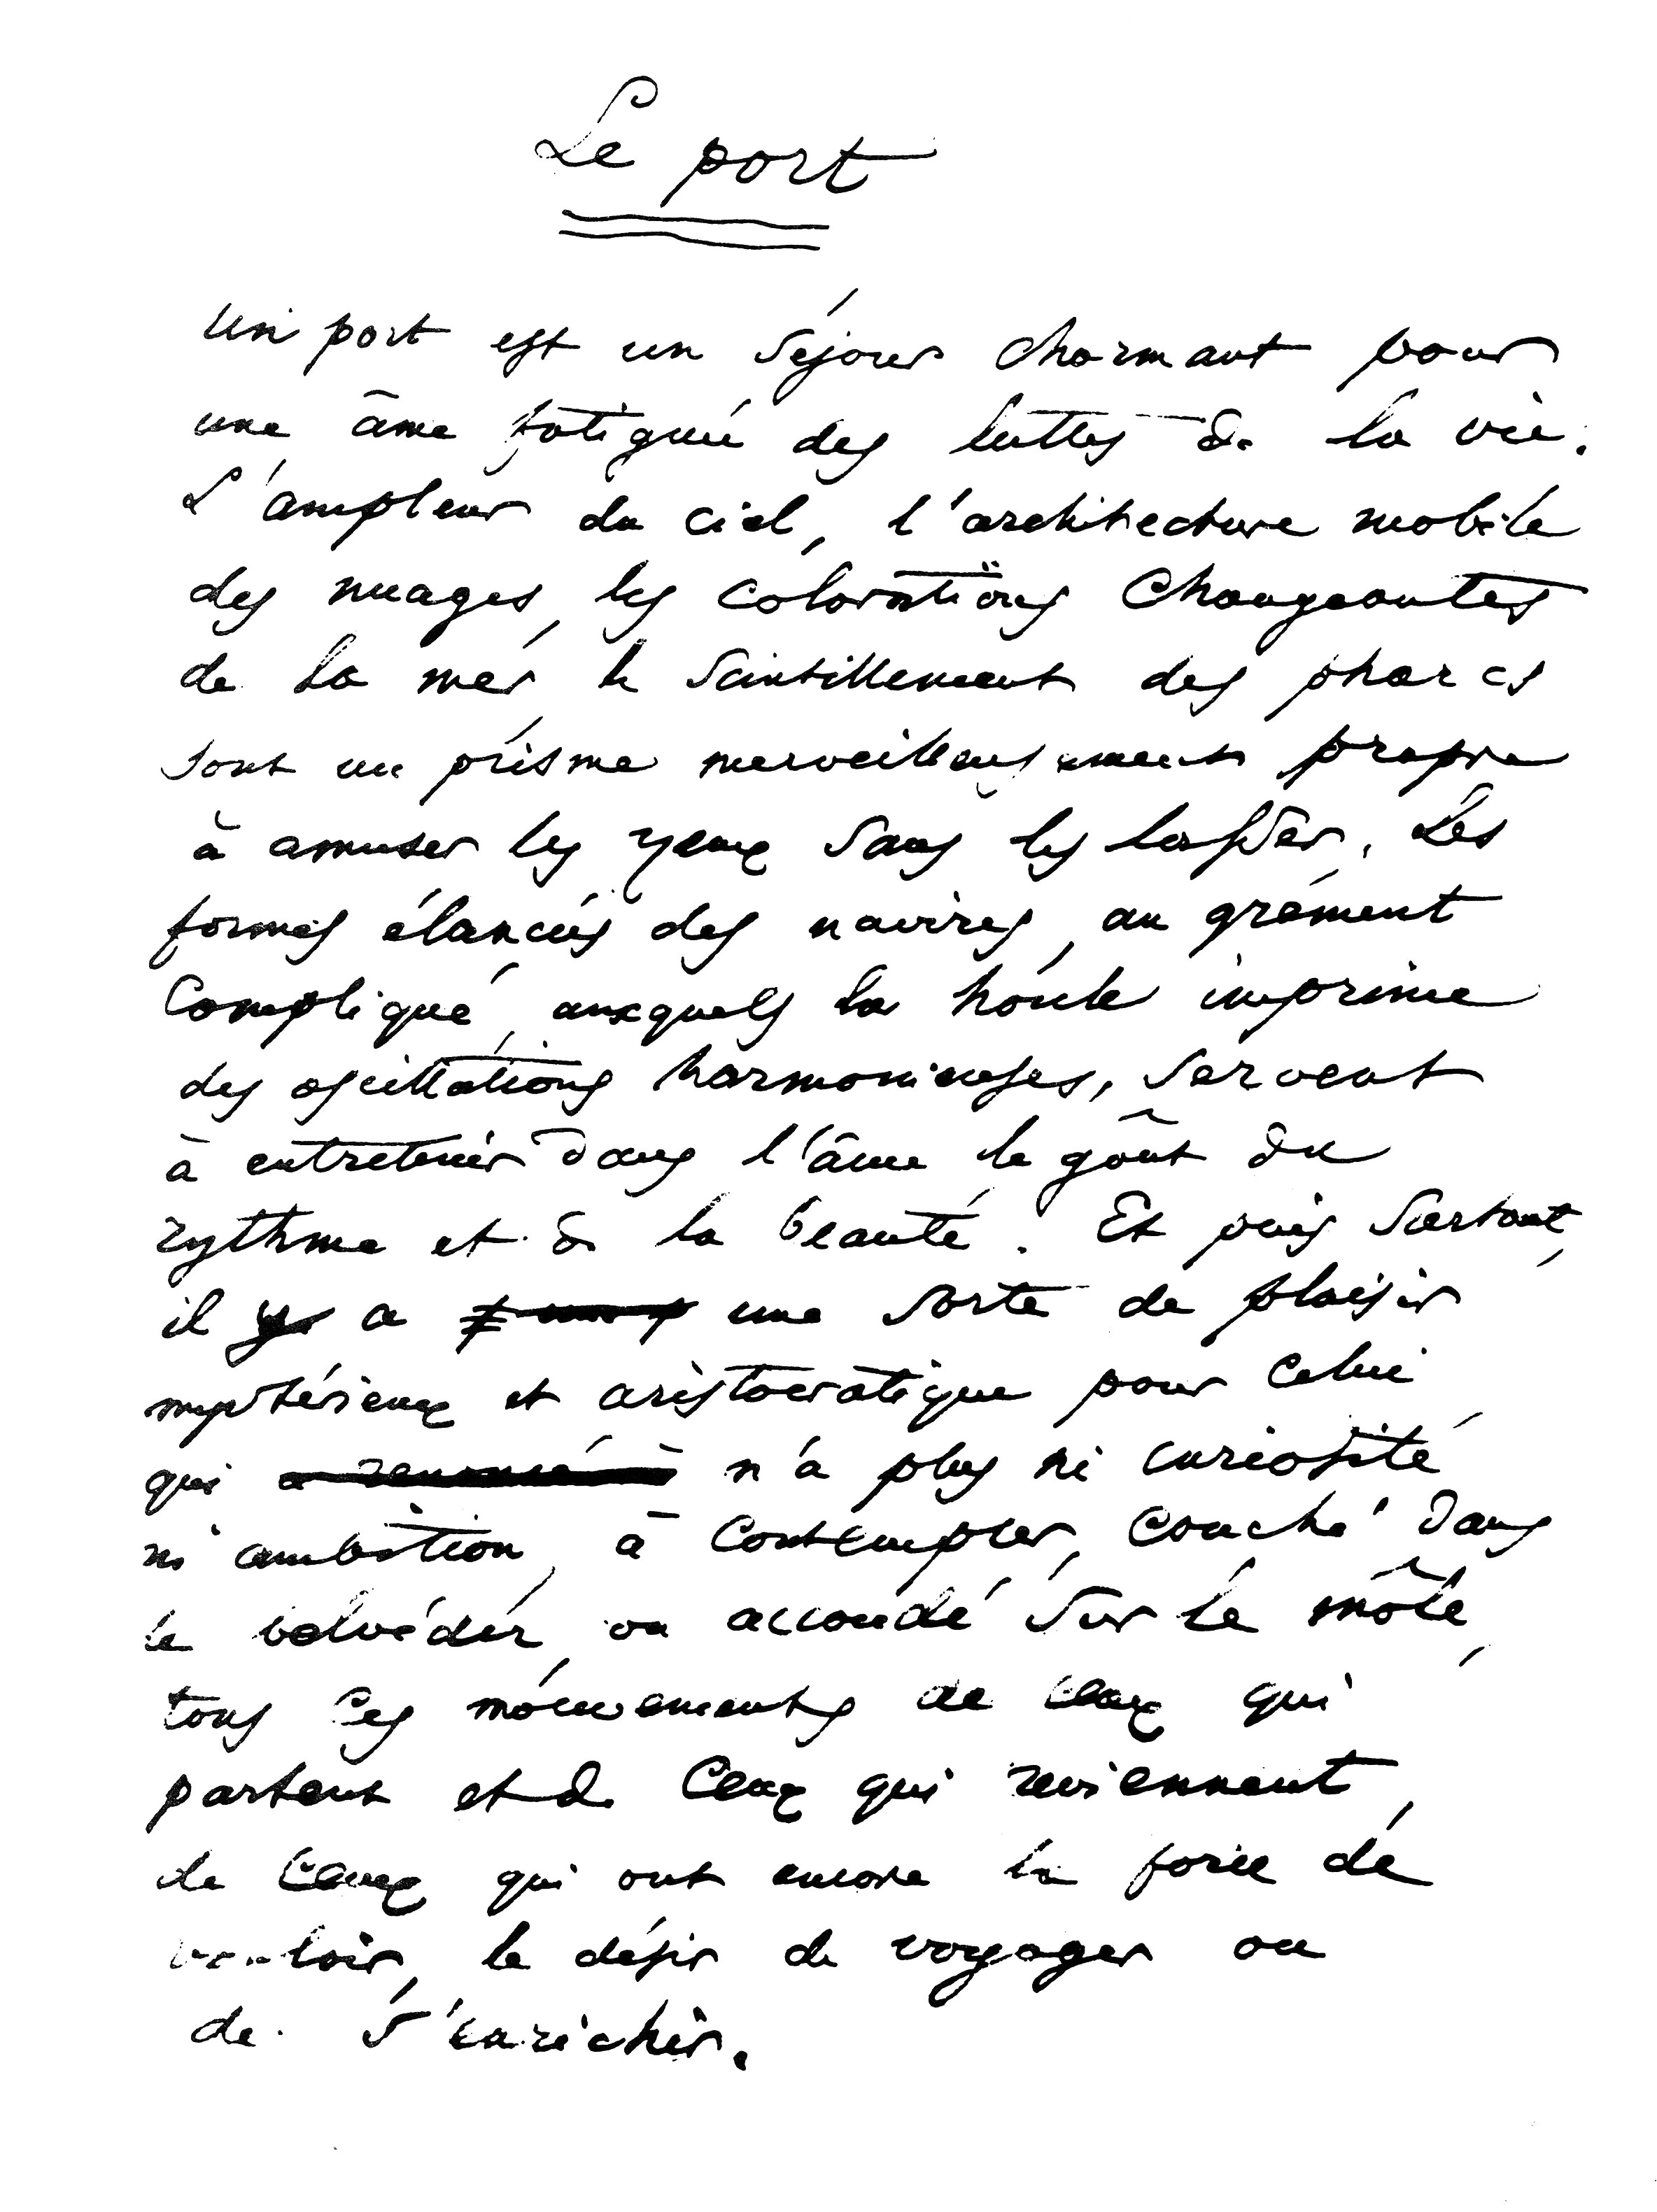 Le port
Un port est un séjour charmant pour
une âme fatiguée des luttes de la vie.
L'ampleur du ciel, l'architecture mobile
des nuages, les colorations changeantes
de la mer, le scintillement des phares
sont un prisme merveilleusement propre
à amuser les yeux sans les lasser. Les
formes élancées des navires, au grément
compliqué, auxquels la houle imprime
des oscillations harmonieuses, servent
à entretenir dans l'âme le goût du
rythme et de la beauté. Et puis surtout,
il y a une sorte de plaisir
mystérieux et aristocratique pour celui
qui a renoncé à n'a plus ni curiosité
ni ambition, à contempler, couché dans
le belvéder, ou accoudé sur le môle,
tous ces mouvements de ceux qui
partent et de ceux qui reviennent,
de ceux qui ont encore la force de
vouloir, le désir de voyager ou
de s'enrichir.